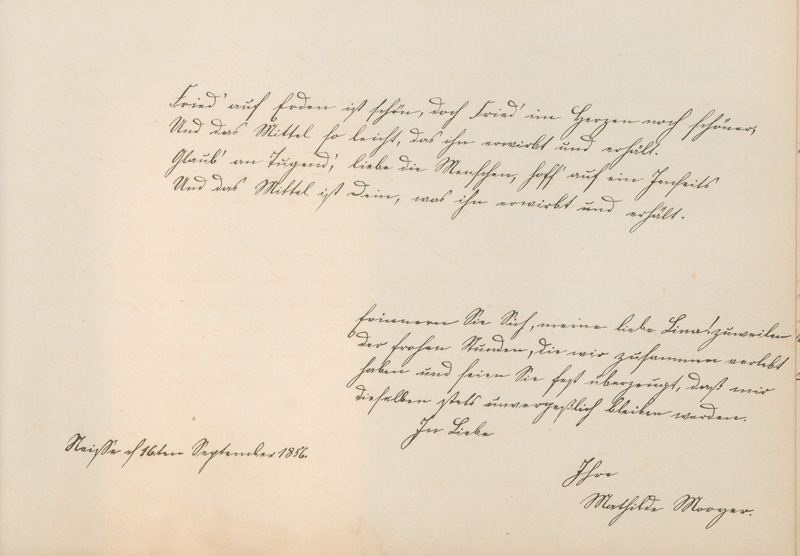 Fried' auf Erden ist schön, doch Fried' im Herzen noch schöner,
Und das Mittel so leicht, das ihn erwirbt und erhält.
Glaub' an Tugend, liebe die Menschen, hoff' auf ein Jenseits
Und das Mittel ist Dein, was ihn erwirbt und erhält.
Erinnern Sie Sich, meine liebe Lina! zuweilen
der frohen Stunden, die wir zusammen verlebt
haben und seien Sie fest überzeugt, daß mir
dieselben stets unvergeßlich bleiben werden.
In Liebe
Neisse d 16ten September 1856.
Ihre
Mathilde Mooyer.